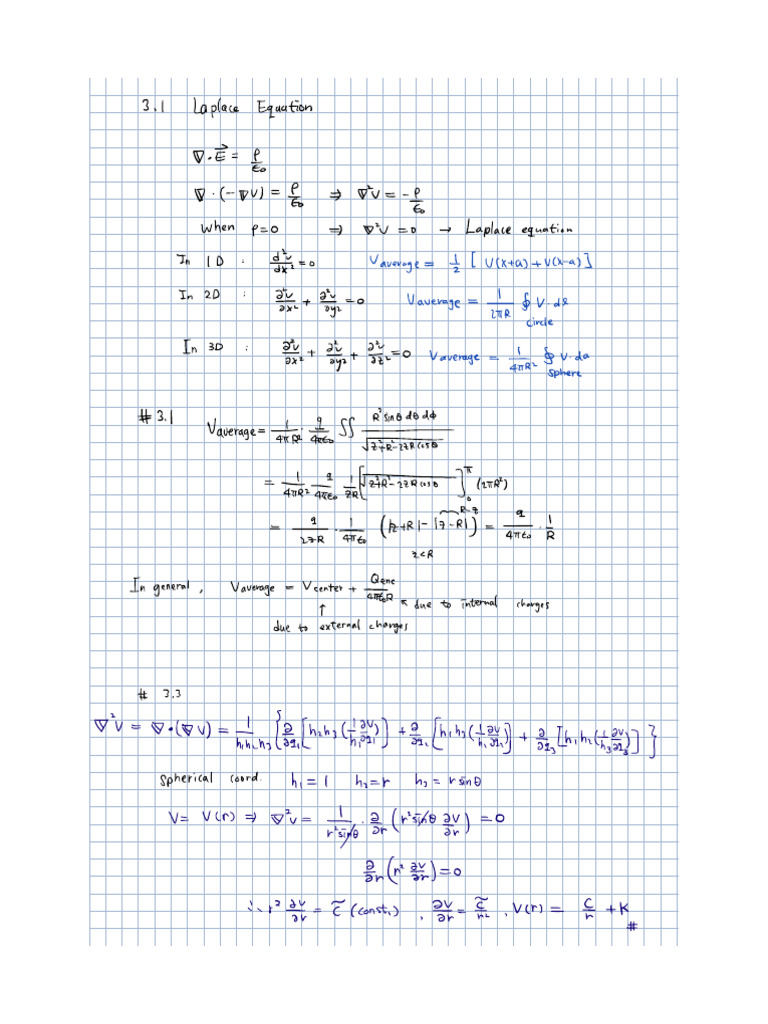 3.1 Laplace Equation
∇·E⃗ = ρ/ε₀
∇·(-∇V) = ρ/ε₀ ⇒ ∇²V = -ρ/ε₀
When ρ=0 ⇒ ∇²V = 0 → Laplace equation
In 1D : d²V/dx² = 0 Vaverage = 1/2 [ V(x+a) + V(x-a) ]
In 2D : ∂²V/∂x² + ∂²V/∂y² = 0 Vaverage = 1/2πR ∮ V·dl
circle
In 3D : ∂²V/∂x² + ∂²V/∂y² + ∂²V/∂z² = 0 Vaverage = 1/4πR² ∮ V·da
sphere
# 3.1
Vaverage = 1/4πR² · q/4πε₀ ∬ R² sinθ dθ dφ / √(z²+R²-2zRcosθ)
= 1/4πR² q/4πε₀ 1/zR [√(z²+R²-2zRcosθ)]₀^π (2πR²)
R-z
= q/2zR · 1/4πε₀ (|z+R| - |z-R|) = q/4πε₀ · 1/R
z<R
In general, Vaverage = Vcenter + Qenc/4πε₀R ↖ due to internal charges
↑
due to external charges
# 3.3
∇²V = ∇·(∇V) = 1/h₁h₂h₃ {∂/∂q₁ [h₂h₃(1/h₁ ∂V/∂q₁)] + ∂/∂q₁ [h₁h₃(1/h₁ ∂V/∂q₂)] + ∂/∂q₃ [h₁h₂(1/h₃ ∂V/∂q₃)]}
Spherical coord. h₁ = 1 h₂ = r h₃ = r sinθ
V = V(r) ⇒ ∇²V = 1/r² sinθ · ∂/∂r (r² sinθ ∂V/∂r) = 0
∂/∂r (r² ∂V/∂r) = 0
∴ r² ∂V/∂r = C̃ (const.) , ∂V/∂r = C̃/r² , V(r) = C/r + K
#